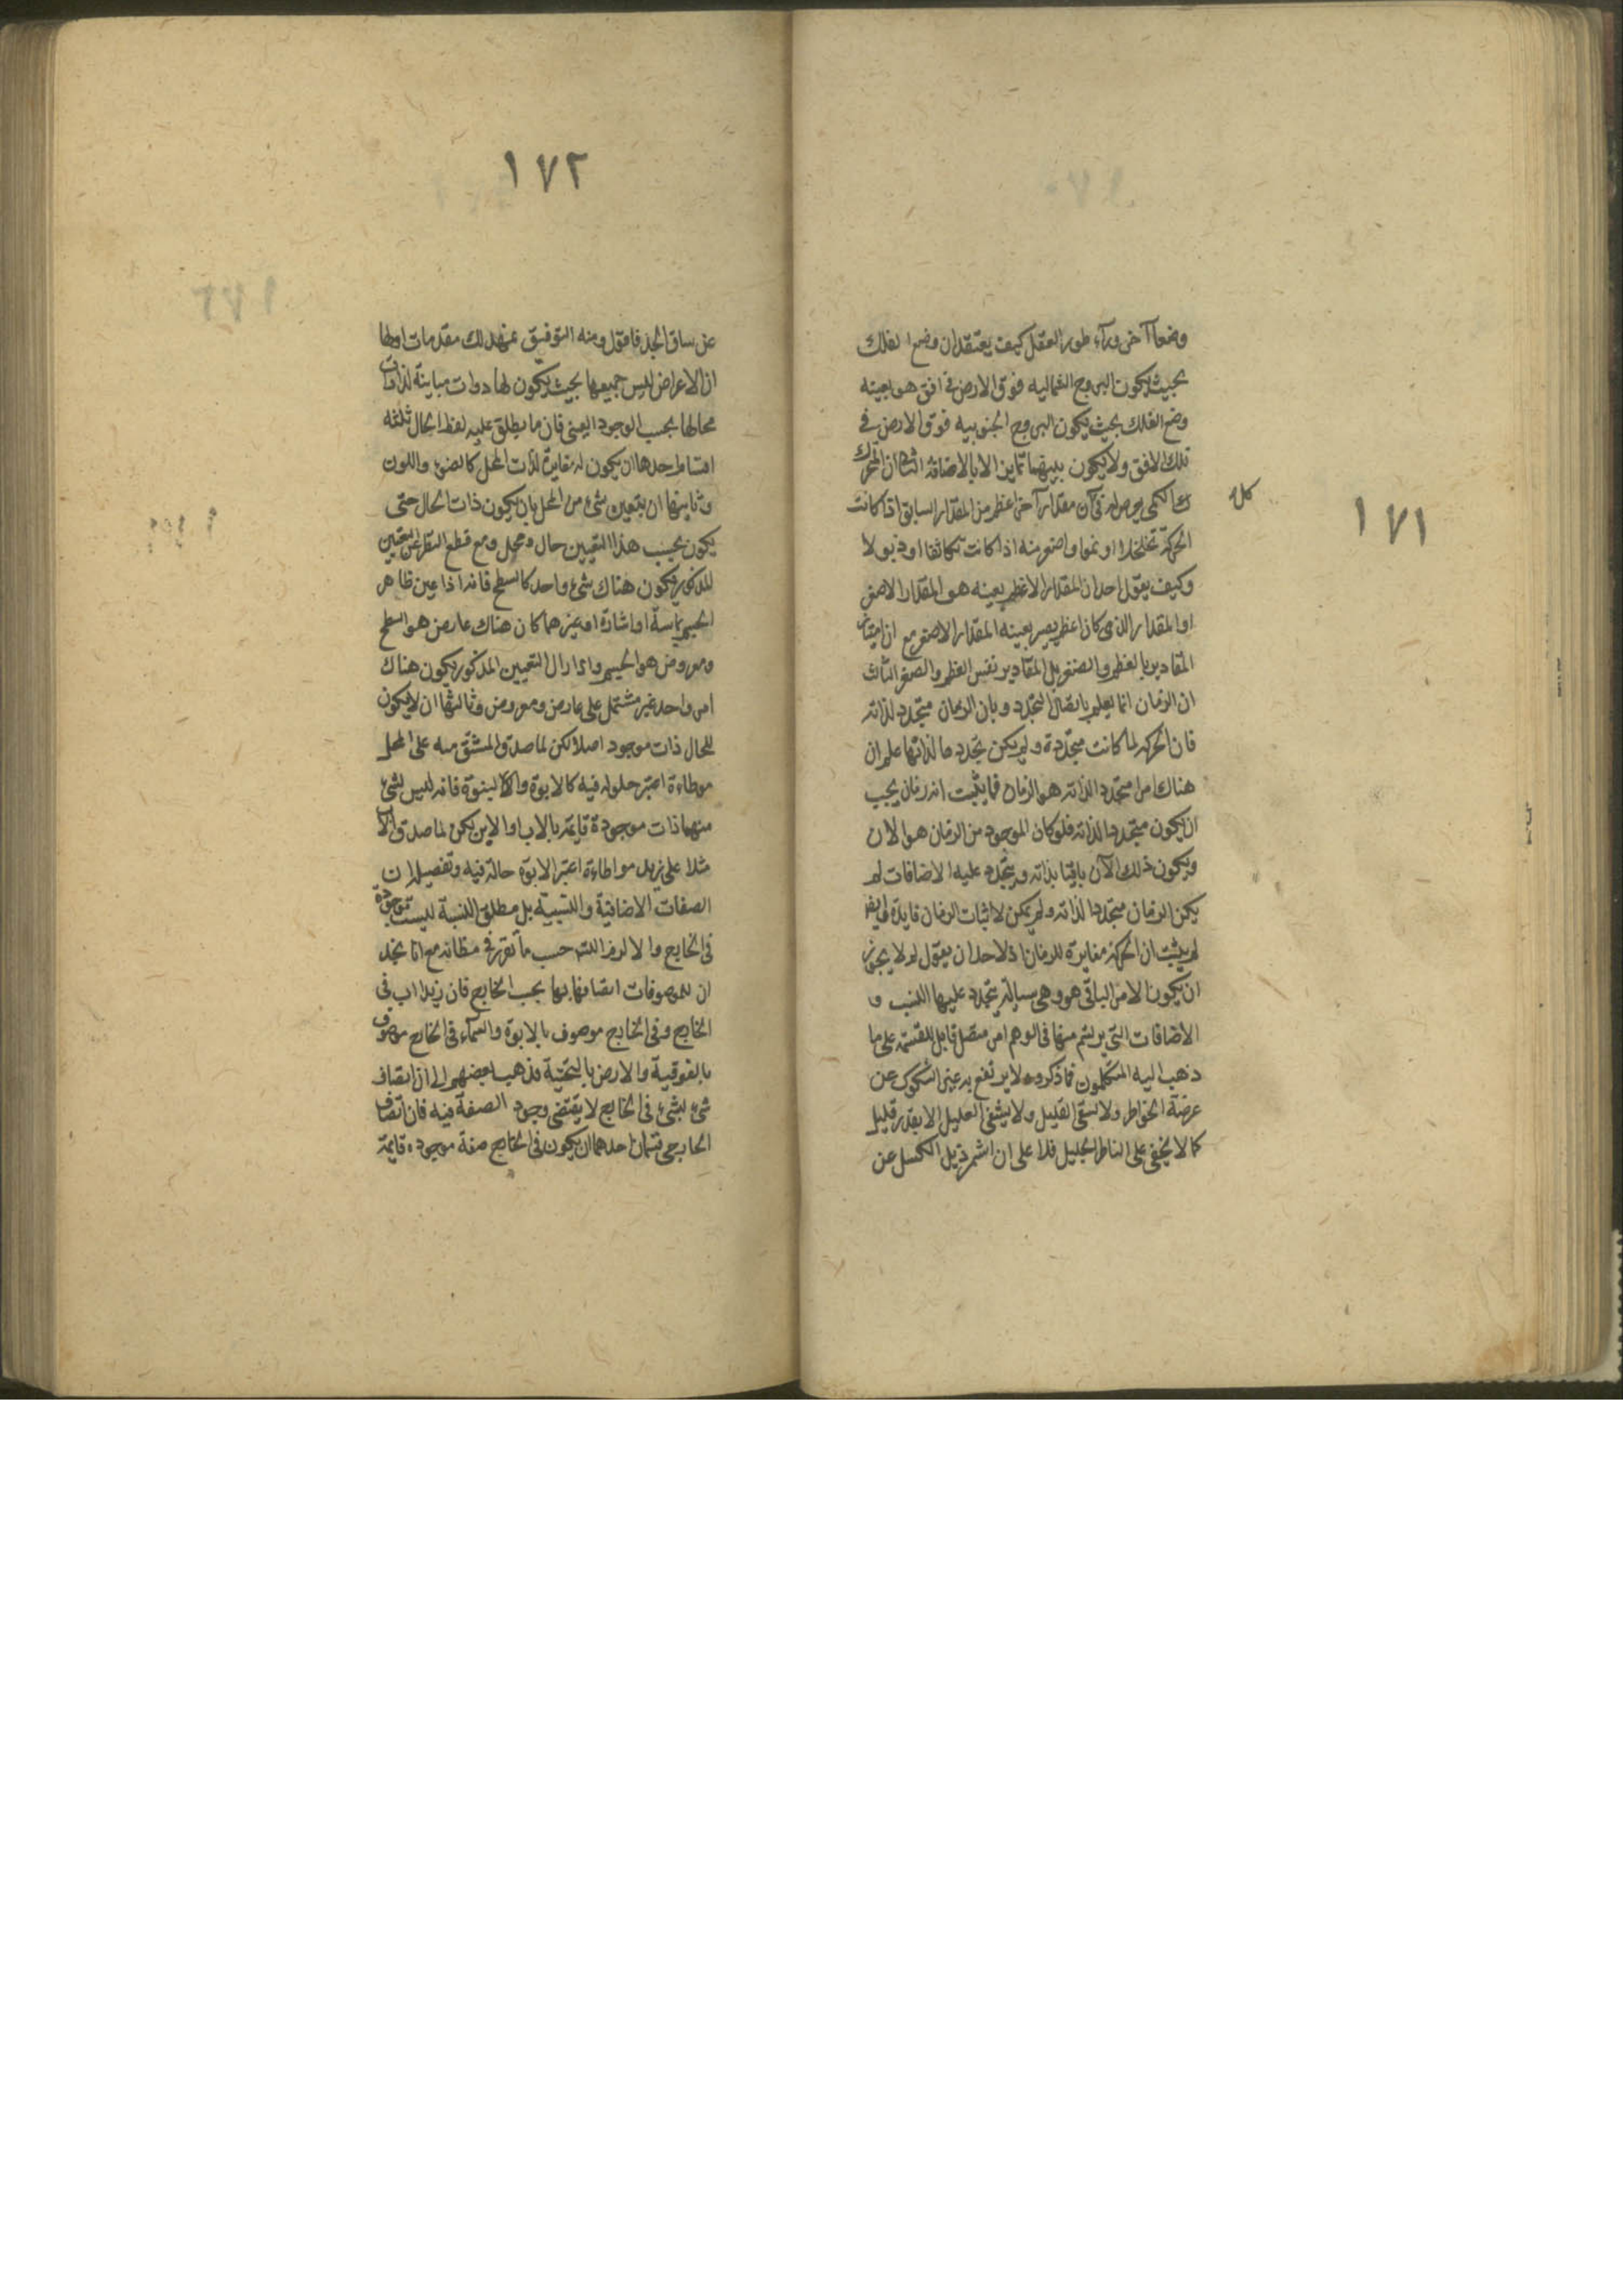 ١٧١
وضعاً آخر ورآء طور العقل كيف يعتقد ان وضع الفلك
بحيث يكون البروج الشماليه فوق الارض فى افق هو بعينه
وضع الفلك بحيث يكون البروج الجنوبيه فوق الارض فى
تلك الافق ولا يكون بينهما تمايز الا بالاضافة الثانى ان المتحرك
كل
فى الكمى يعرض له فى آن مقدار آخر اعظم من المقدار السابق اذا كانت
الحركة تخلخلا او نموا واصغر منه اذا كانت تكاثفا او ذبولا
وكيف يقول احد ان المقدار الاعظم بعينه هو المقدار الاصغر
او المقدار الذى كان اعظم يصير بعينه المقدار الاصغر مع ان امتياز
المقادير بالعظم والصغر بل المقادير نفس العظم والصغر الثالث
ان الزمان انما يعلم باتصال التجدد وبان الزمان متجدد لذاته
فان الحركه لما كانت متجددة ولم يكن تجددها لذاتها علم ان
هناك امرا متجدد الذاته هو الزمان فما يثبت انه زمان يجب
ان يكون متجددا لذاته فلو كان الموجود من الزمان هو الآن
ويكون ذلك الآن باقيا بذاته ويتجدد عليه الاضافات لم
يكن الزمان متجددا لذاته ولم يكن لاثبات الزمان فايدة وايضا
لم يثبت ان الحركة مغايرة للزمان اذ لاحد ان يقول لم لا يجوز
ان يكون الامر الباقى هو وهى سيالة يتجدد عليها النسب و
الاضافات التى يرتسم منها فى الوهم امر متصل قابل للقسمة على ما
ذهب اليه المتكلمون فما ذكروه لا يرتفع به عين الشكوك عن
عرضة الخواطر ولا يسقى الغليل ولا يشفى العليل الا بقدر قليل
كما لا يخفى على الناظر الجليل فلا على ان اشمر ذيل الكسل عن
١٧٢
عن ساق الجد فاقول ومنه التوفيق تمهد لك مقدمات اولها
ان الاعراض ليس جميعها بحيث يكون لها ذوات مباينة لذوات
محالها بحسب الوجود العينى فان ما يطلق عليه لفظ الحال ثلثه
اقسام احدها ان يكون له مغايرة لذات المحل كالضوء واللون
وثانيها ان يتعين شئ من المحل بان يكون ذات الحال حتى
يكون بحسب هذا التعيين حال ومحل ومع قطع النظر عن التعيين
المذكور يكون هناك شئ واحد كالسطح فانه اذا عين ظاهر
الجسم بمماسة او اشارة او غيرهما كان هناك عارض هو السطح
ومعروض هو الجسم واذا زال التعيين المذكور يكون هناك
امر واحد غير مشتمل على عارض ومعروض وثالثها ان لا يكون
للحال ذات موجود اصلا لكن لما صدق المشتق منه على المحل
مواطاة اعتبر حلوله فيه كالابوة والبنوة فانه ليس لشئ
منهما ذات موجودة قايمة بالاب او الابن لكن لما صدق الاب
مثلا على زيد مواطاة اعتبر الابوة حالة فيه وتفصيله ان
الصفات الاضافية والنسبية بل مطلق النسبة ليست موجودة
فى الخارج والا لزم التسلسل حسب ما تقرر فى مظانه مع انا نجد
ان للموصوفات اتصافها بها بحسب الخارج فان زيدا اب فى
الخارج وفى الخارج موصوف بالابوة والسمآء فى الخارج موصوف
بالفوقية والارض بالتحتية فذهب بعضهم الى ان اتصاف
شئ بشئ فى الخارج لا يقتضى وجود الصفة فيه فان اتصاف
الخارجى قسمان احدهما ان يكون فى الخارج صفة موجوده قايمة